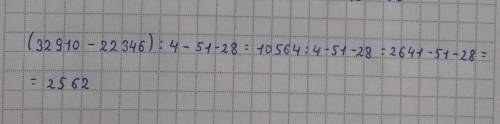 (32910 - 22346) : 4 - 51 - 28 = 10564 : 4 - 51 - 28 = 2641 - 51 - 28 =
= 2562